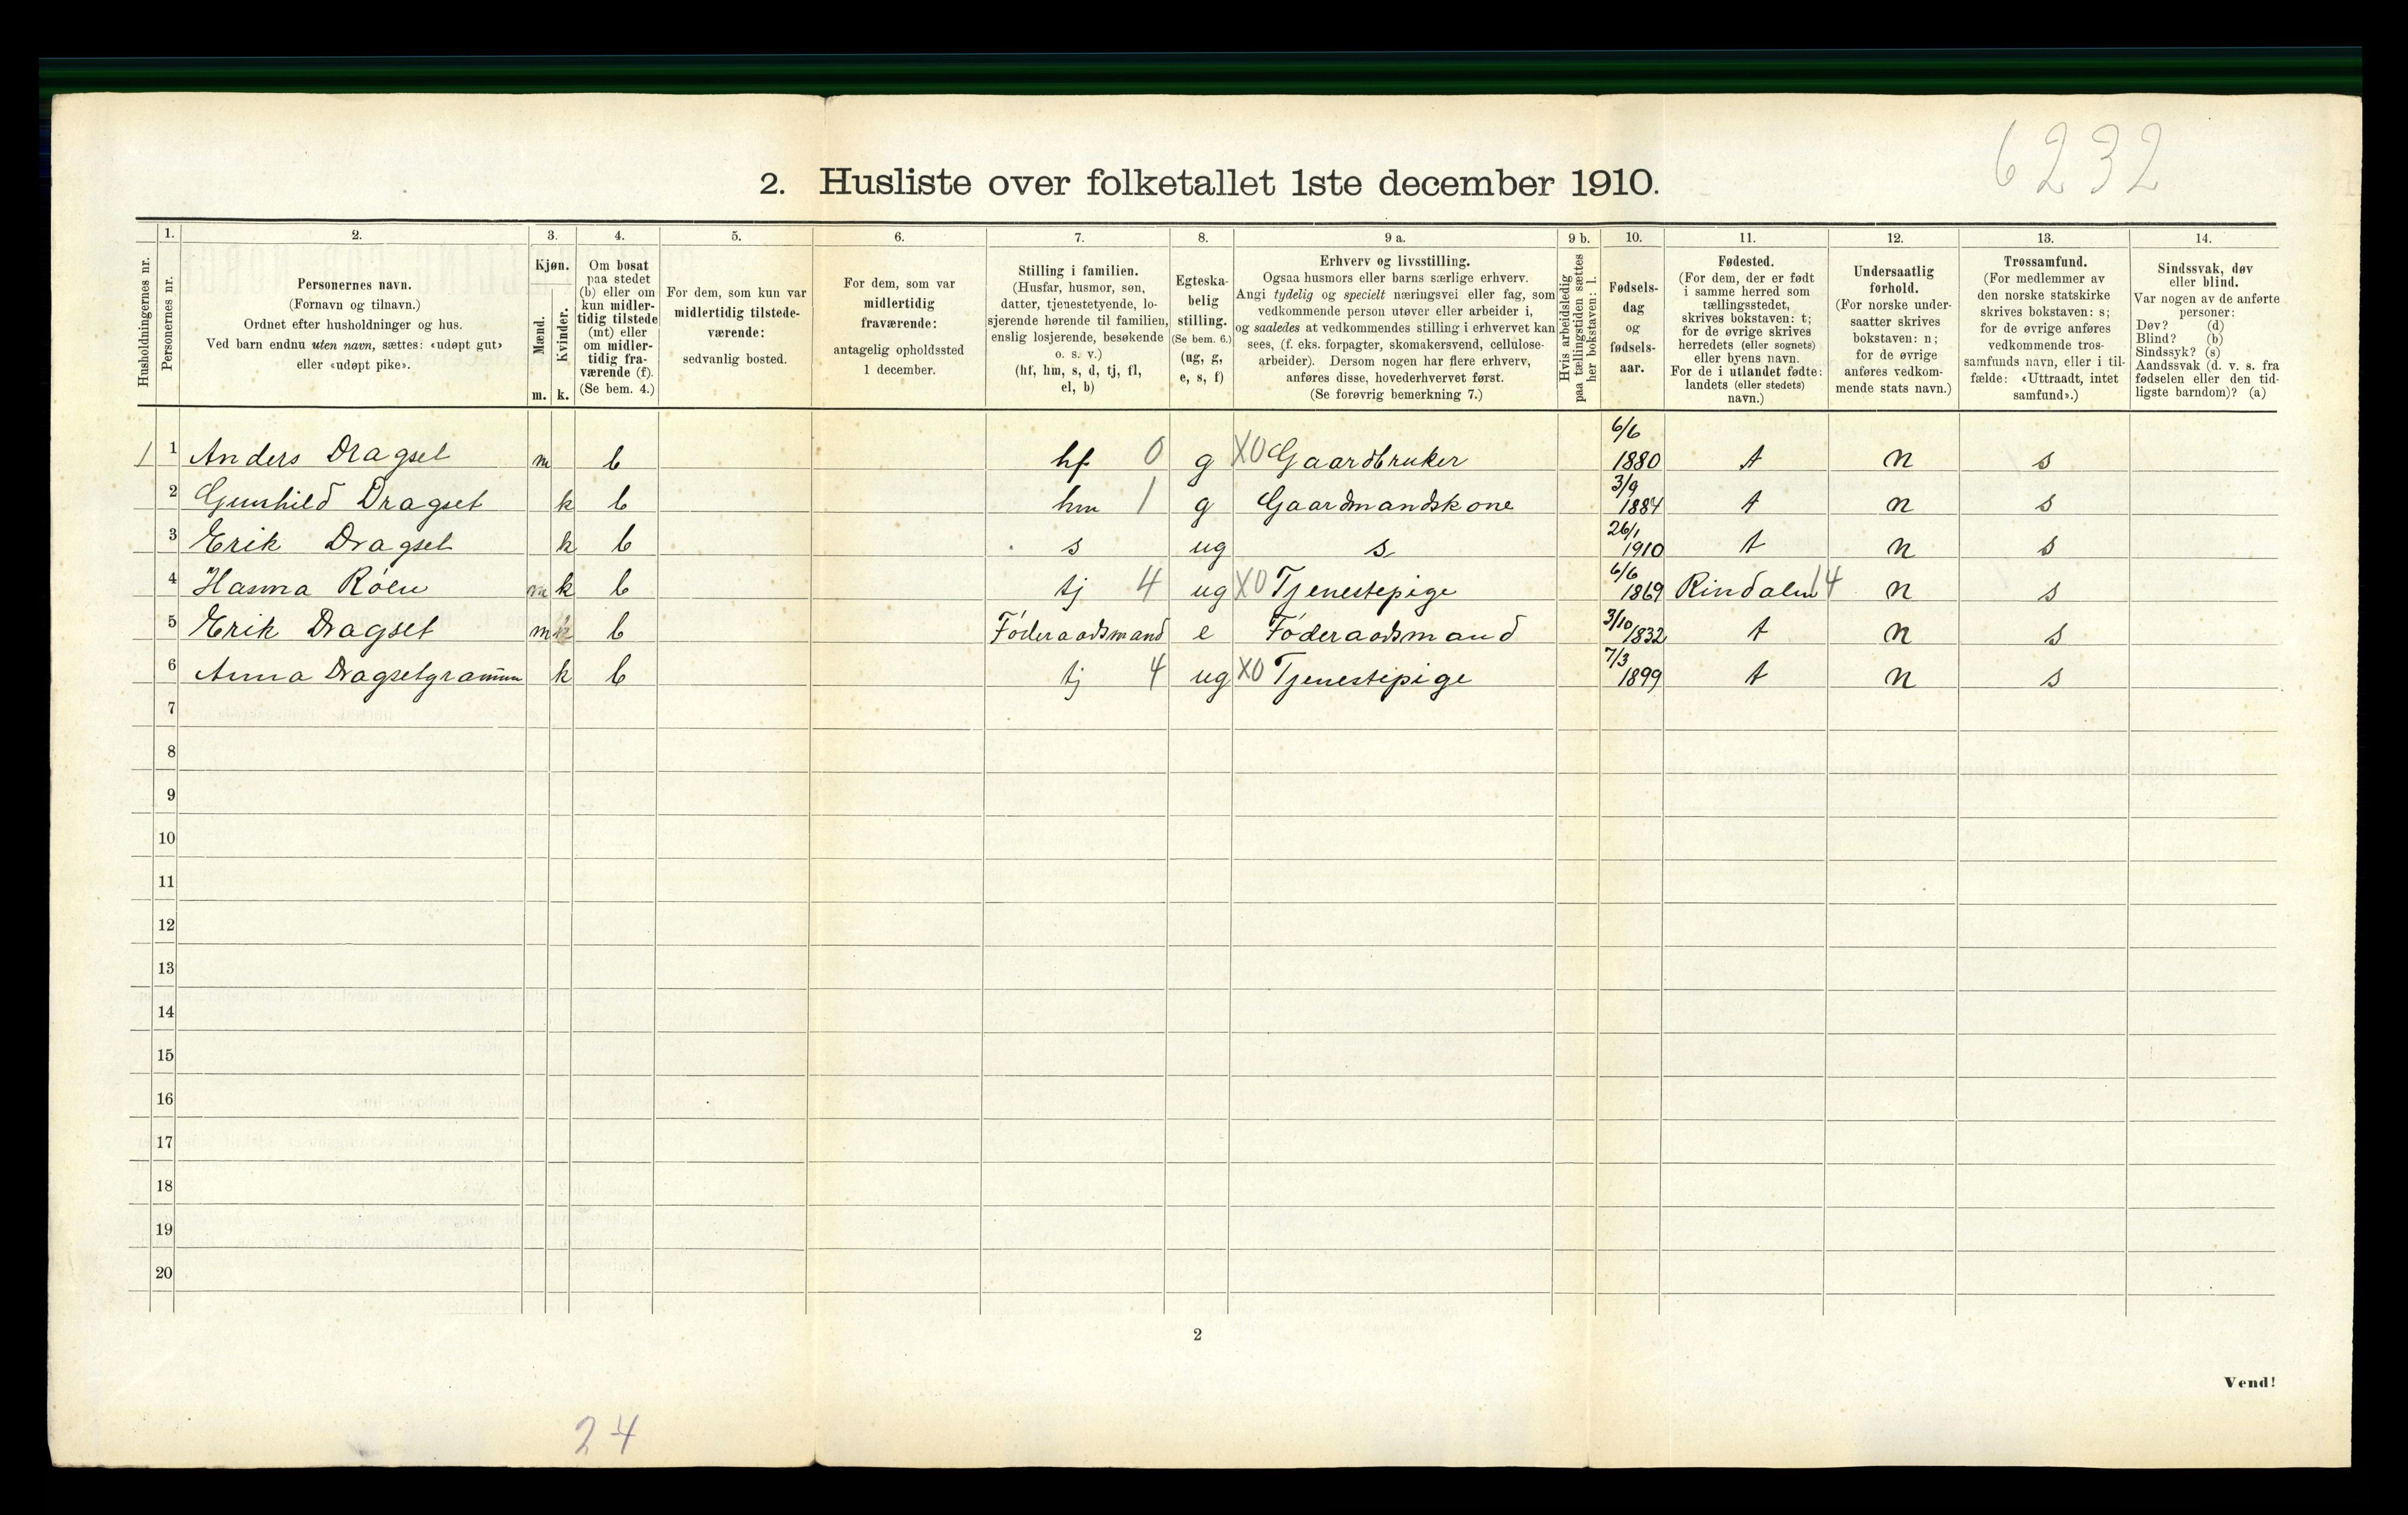 6232
2. Husliste over folketallet 1ste december 1910.
Husholdningernes nr.
1.
Personernes nr.
2.
Personernes navn.
(Fornavn og tilnavn.)
Ordnet efter husholdninger og hus.
Ved barn endnu uten navn, sættes: «udøpt gut»
eller «udøpt pike».
3.
Kjøn.
Mænd.
Kvinder.
m. k.
4.
Om bosat
paa stedet
(b) eller om
kun midler-
tidig tilstede
(mt) eller
om midler-
tidig fra-
værende (f).
(Se bem. 4.)
5.
For dem, som kun var
midlertidig tilstede-
værende:
sedvanlig bosted.
6.
For dem, som var
midlertidig
fraværende:
antagelig opholdssted
1 december.
7.
Stilling i familien.
(Husfar, husmor, søn,
datter, tjenestetyende, lo-
sjerende hørende til familien,
enslig losjerende, besøkende
o. s. v.)
(hf, hm, s, d, tj, fl,
el, b)
8.
Egteska-
belig
stilling.
(Se bem. 6.)
(ug, g,
e, s, f)
9 a.
Erhverv og livsstilling.
Ogsaa husmors eller barns særlige erhverv.
Angi tydelig og specielt næringsvei eller fag, som
vedkommende person utøver eller arbeider i,
og saaledes at vedkommendes stilling i erhvervet kan
sees, (f. eks. forpagter, skomakersvend, cellulose-
arbeider). Dersom nogen har flere erhverv,
anføres disse, hovederhvervet først.
(Se forøvrig bemerkning 7.)
9 b.
Hvis arbeidsledig
paa tællingstiden sættes
her bokstaven: l.
10.
Fødsels-
dag
og
fødsels-
aar.
11.
Fødested.
(For dem, der er født
i samme herred som
tællingsstedet,
skrives bokstaven: t;
for de øvrige skrives
herredets (eller sognets)
eller byens navn.
For de i utlandet fødte:
landets (eller stedets)
navn.)
12.
Undersaatlig
forhold.
(For norske under-
saatter skrives
bokstaven: n;
for de øvrige
anføres vedkom-
mende stats navn.)
13.
Trossamfund.
(For medlemmer av
den norske statskirke
skrives bokstaven: s;
for de øvrige anføres
vedkommende tros-
samfunds navn, eller i til-
fælde: «Uttraadt, intet
samfund».)
14.
Sindssvak, døv
eller blind.
Var nogen av de anførte
personer:
Døv? (d)
Blind? (b)
Sindssyk? (s)
Aandssvak (d. v. s. fra
fødselen eller den tid-
ligste barndom)? (a)
1 1 Anders Dragset m b hf 0 g X0 Gaardbruker 6/6 1880 t n s
2 Gunhild Dragset k b hm 1 g Gaardmandskone 3/9 1884 t n s
3 Erik Dragset k b s ug s 26/1 1910 t n s
4 Hanna Röen m k b tj 4 ug X0 Tjenestepige 6/6 1869 Rindalen 14 n s
5 Erik Dragset m k b Föderaadsmand e Föderaadsmand 3/10 1832 t n s
6 Anna k b tj 4 ug X0 Tjenestepige 7/3 1899 t n s
7
8
9
10
11
12
13
14
15
16
17
18
19
20
2
Vend!
24